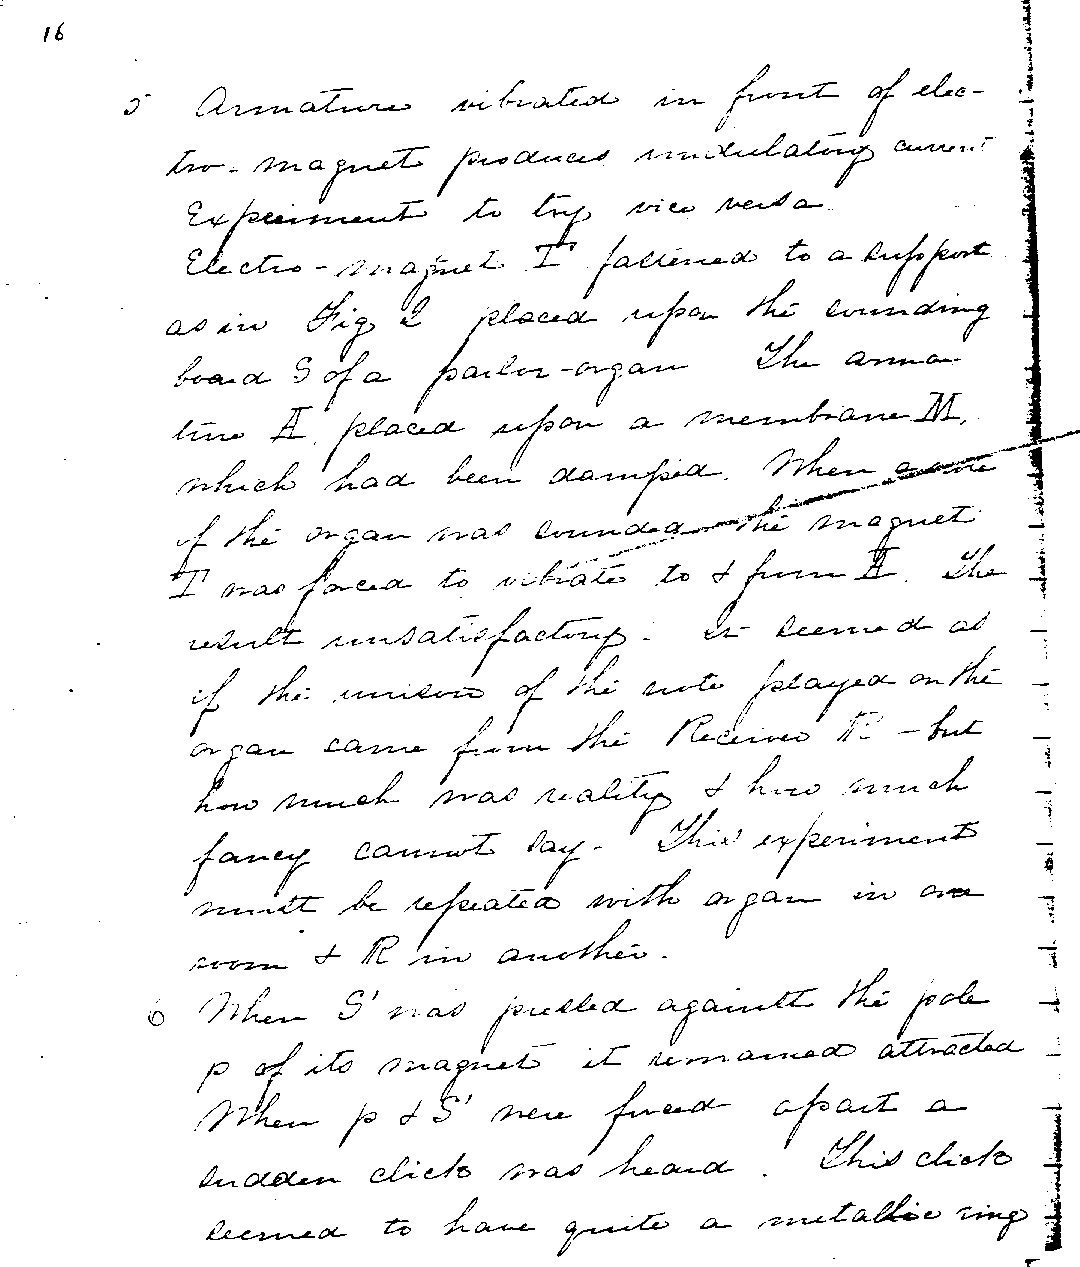 16
5 Armature vibrated in front of elec-
tro-magnet produces undulatory current
Experiment to try vice versa
Electro-magnet I fastened to a support
as in Fig 2 placed upon the sounding
board S of a parlor-organ The arma-
ture A placed upon a membrane M,
which had been damped. When a note
of the organ was sounded the magnet
I was forced to vibrate to & from A. The
result unsatisfactory. It seemed as
if the unison of the note played on the
organ came from the Receiver R - but
how much was reality & how much
fancy cannot say - This experiment
must be repeated with organ in one
room & R in another.
6 When S' was pressed against the pole
p of its magnet it remained attracted
When p & S' were forced apart a
sudden click was heard. This click
seemed to have quite a metallic ring